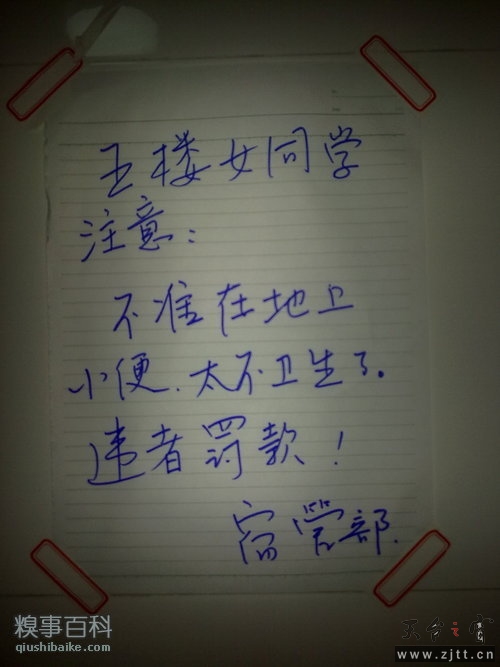 五楼女同学
注意：
不准在地上
小便、太不卫生了。
违者罚款！
宿管部
糗事百科
qiushibaike.com
www.zjtt.cn